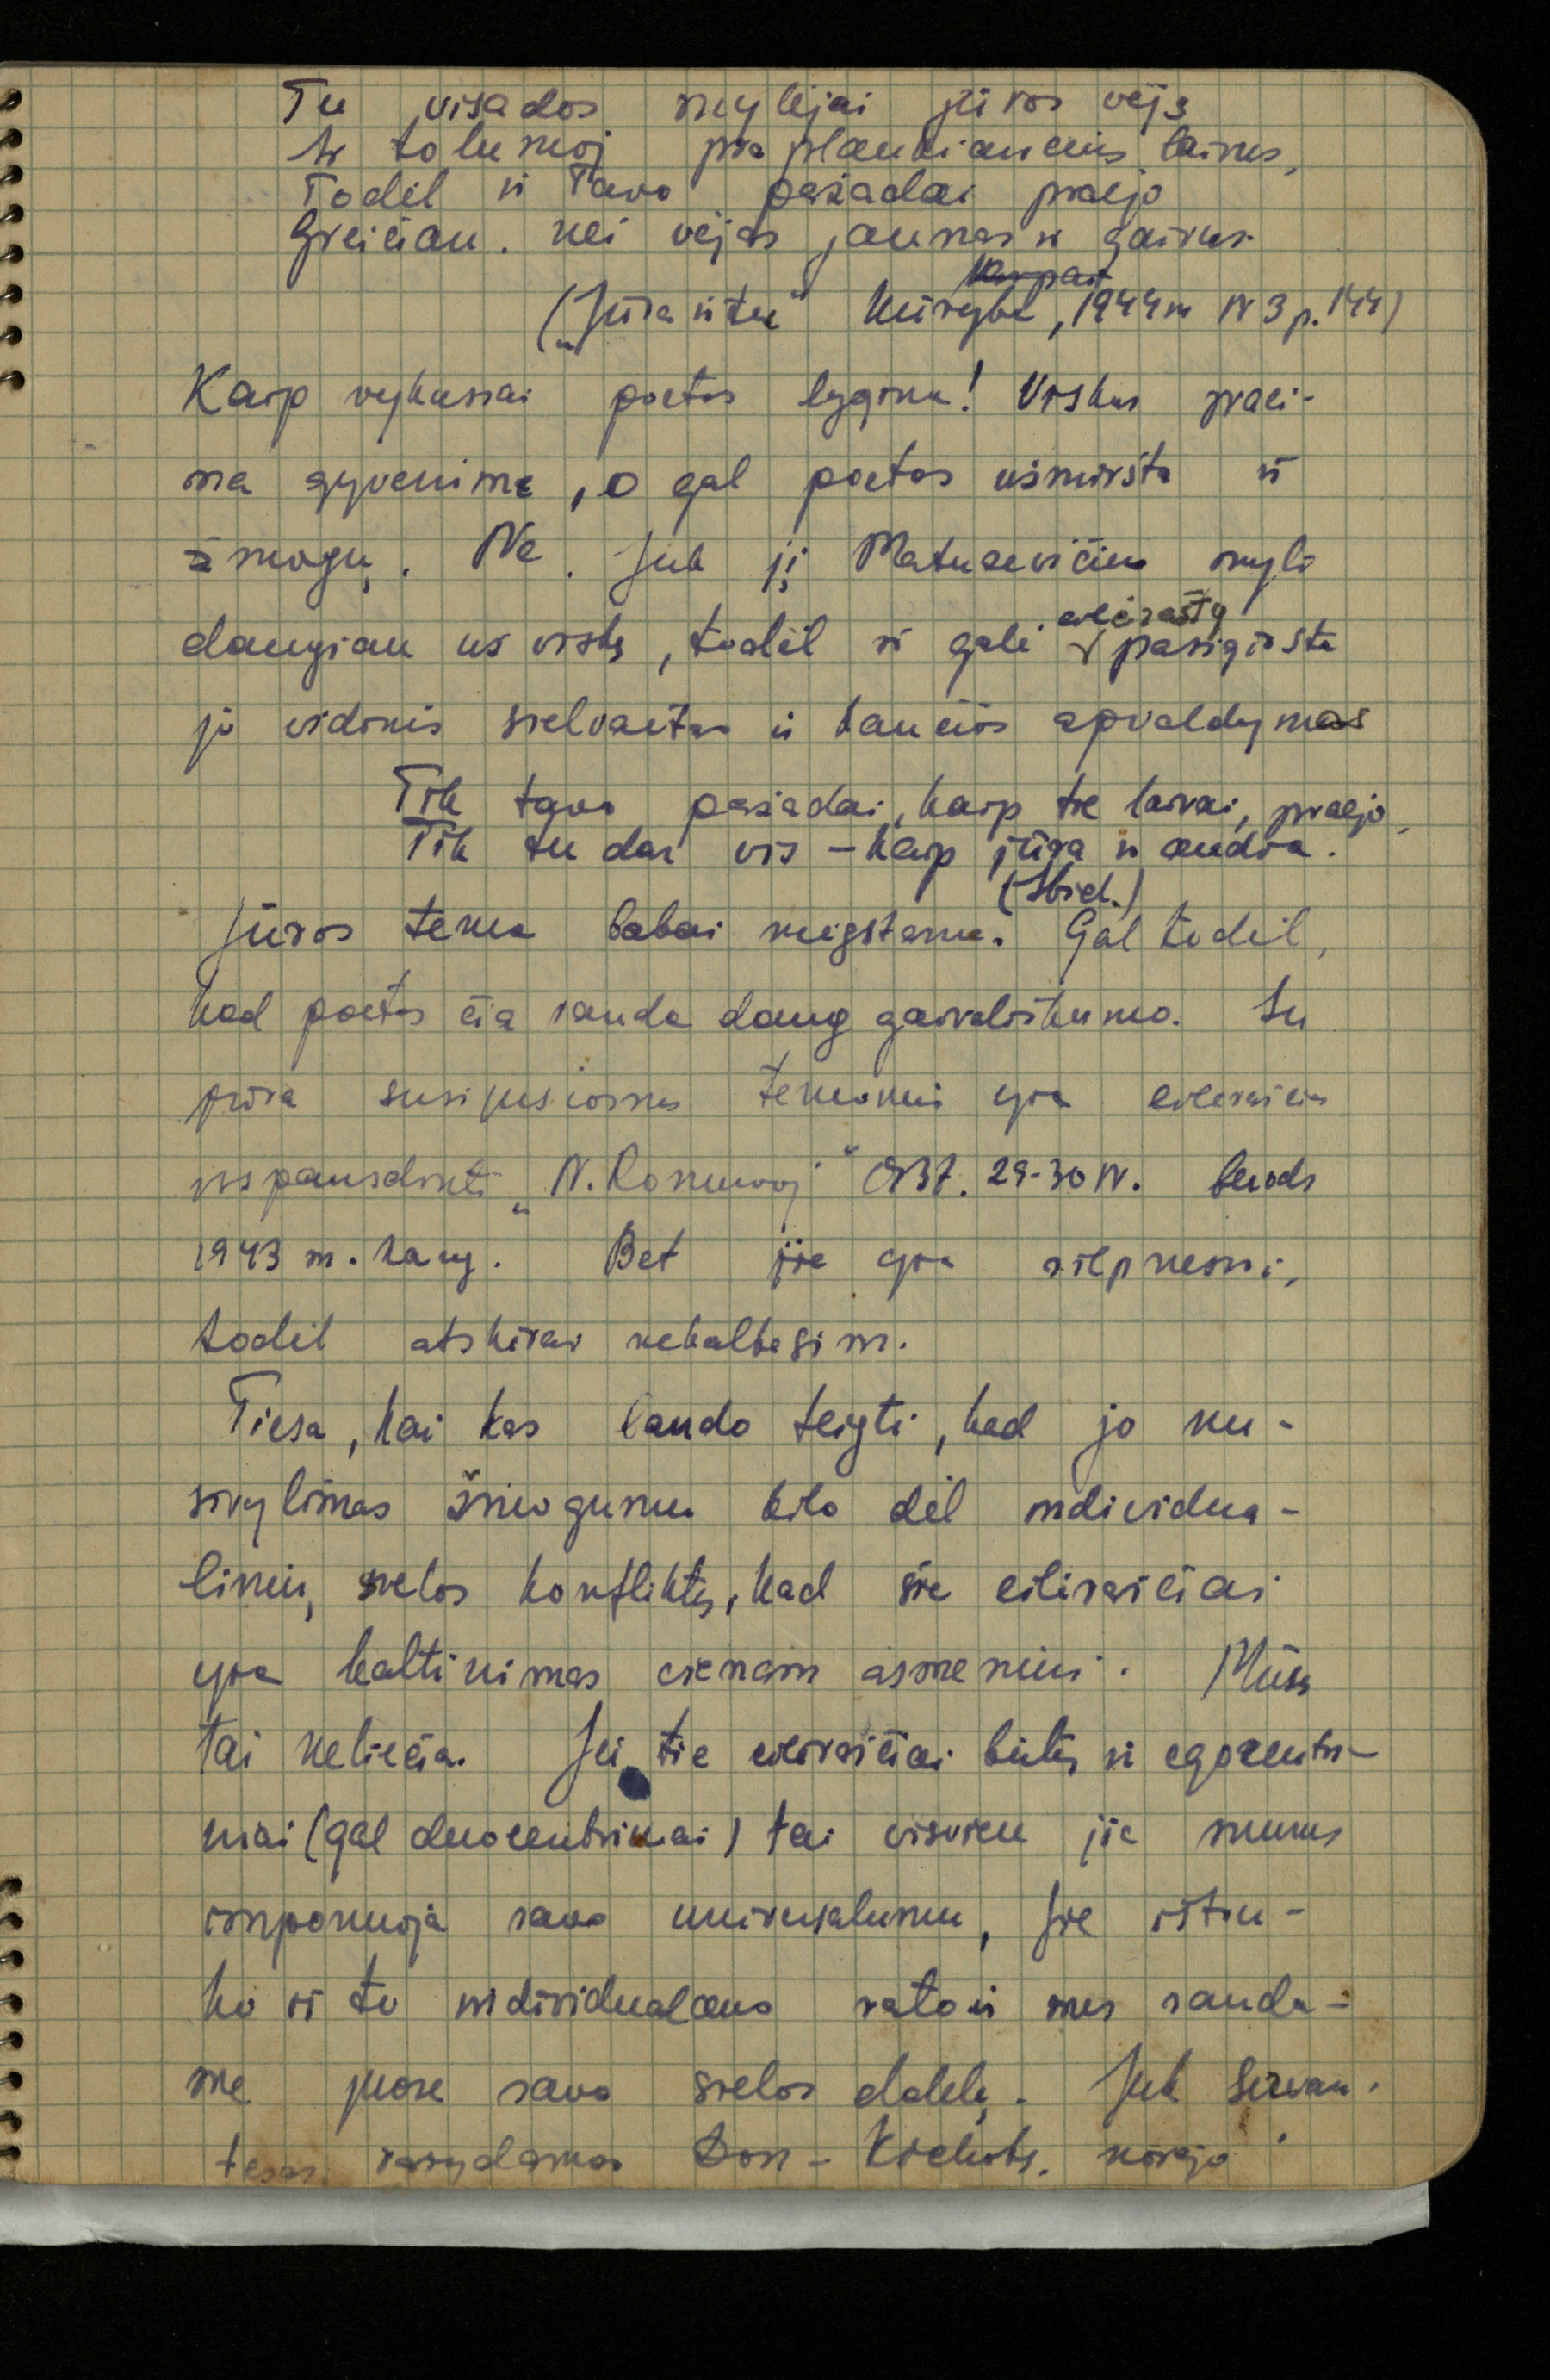 Tu visados mylėjai jūros vėją
Ir tolumoj praplaukiančius laivus,
Todėl ir Tavo pažadai praėjo
Greičiau, nei vėjas jaunas ir gaivus.
(„Jūra ir tu" Kūryba, 1944 m N 3 p. 144)
Kaip vykusiai poetas lygina! Viskas praei-
na gyvenime, o gal poetas užmiršta ir
žmogų. Ne. Juk jį Matusevičius myli
daugiau už viską, todėl ir gali eilėrašty pasigirsta
jo vidinis sielvartas ir kančios apvaldymas
Tik tavo pažadai, kaip tie laivai, praėjo,
Tik tu dar vis – kaip jūra ir audra.
(Ibid.)
Jūros tema labai mėgstama. Gal todėl,
kad poetas čia randa daug gaivališkumo. Su
jūra susijusiomis temomis yra eilėraščiai
išspausdinti „N. Romuvoj" 1937. 29-30 N. berods
1943 m. kaug. Bet jie yra silpnesni,
todėl atskirai nekalbėsim.
Tiesa, kai kas bando teigti, kad jo nu-
sivylimas žmogumi kilo dėl individua-
linių sielos konfliktų, kad šie eilėraščiai
yra kaltinimas vienam asmeniui. Mūsų
tai neliečia. Jei tie eilėraščiai būtų ir egocentri-
niai (gal duocentriniai) tai visvien jie mums
imponuoja savo universalumu, jie ištrū-
ko iš to individualaus rato ir mes randa-
me juose savo sielos dalelę. Juk Servan-
tesas rašydamas Don-Kichotą, norėjo